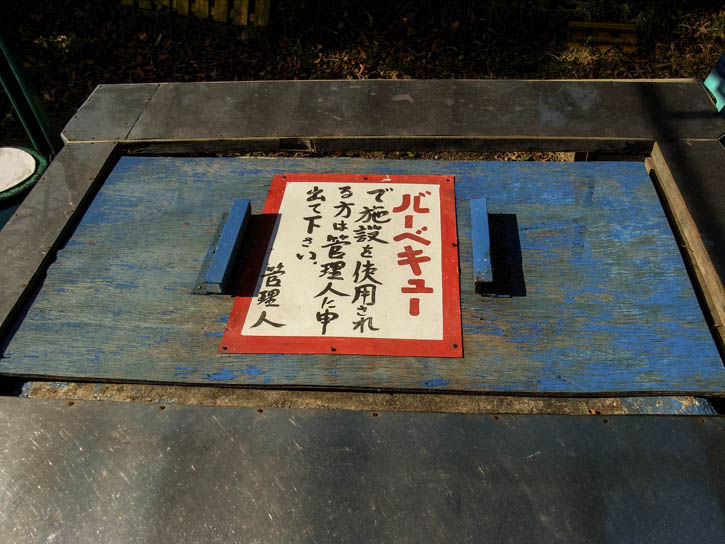 バーベキュー
で施設を使用され
る方は管理人に申
出て下さい。
管理人